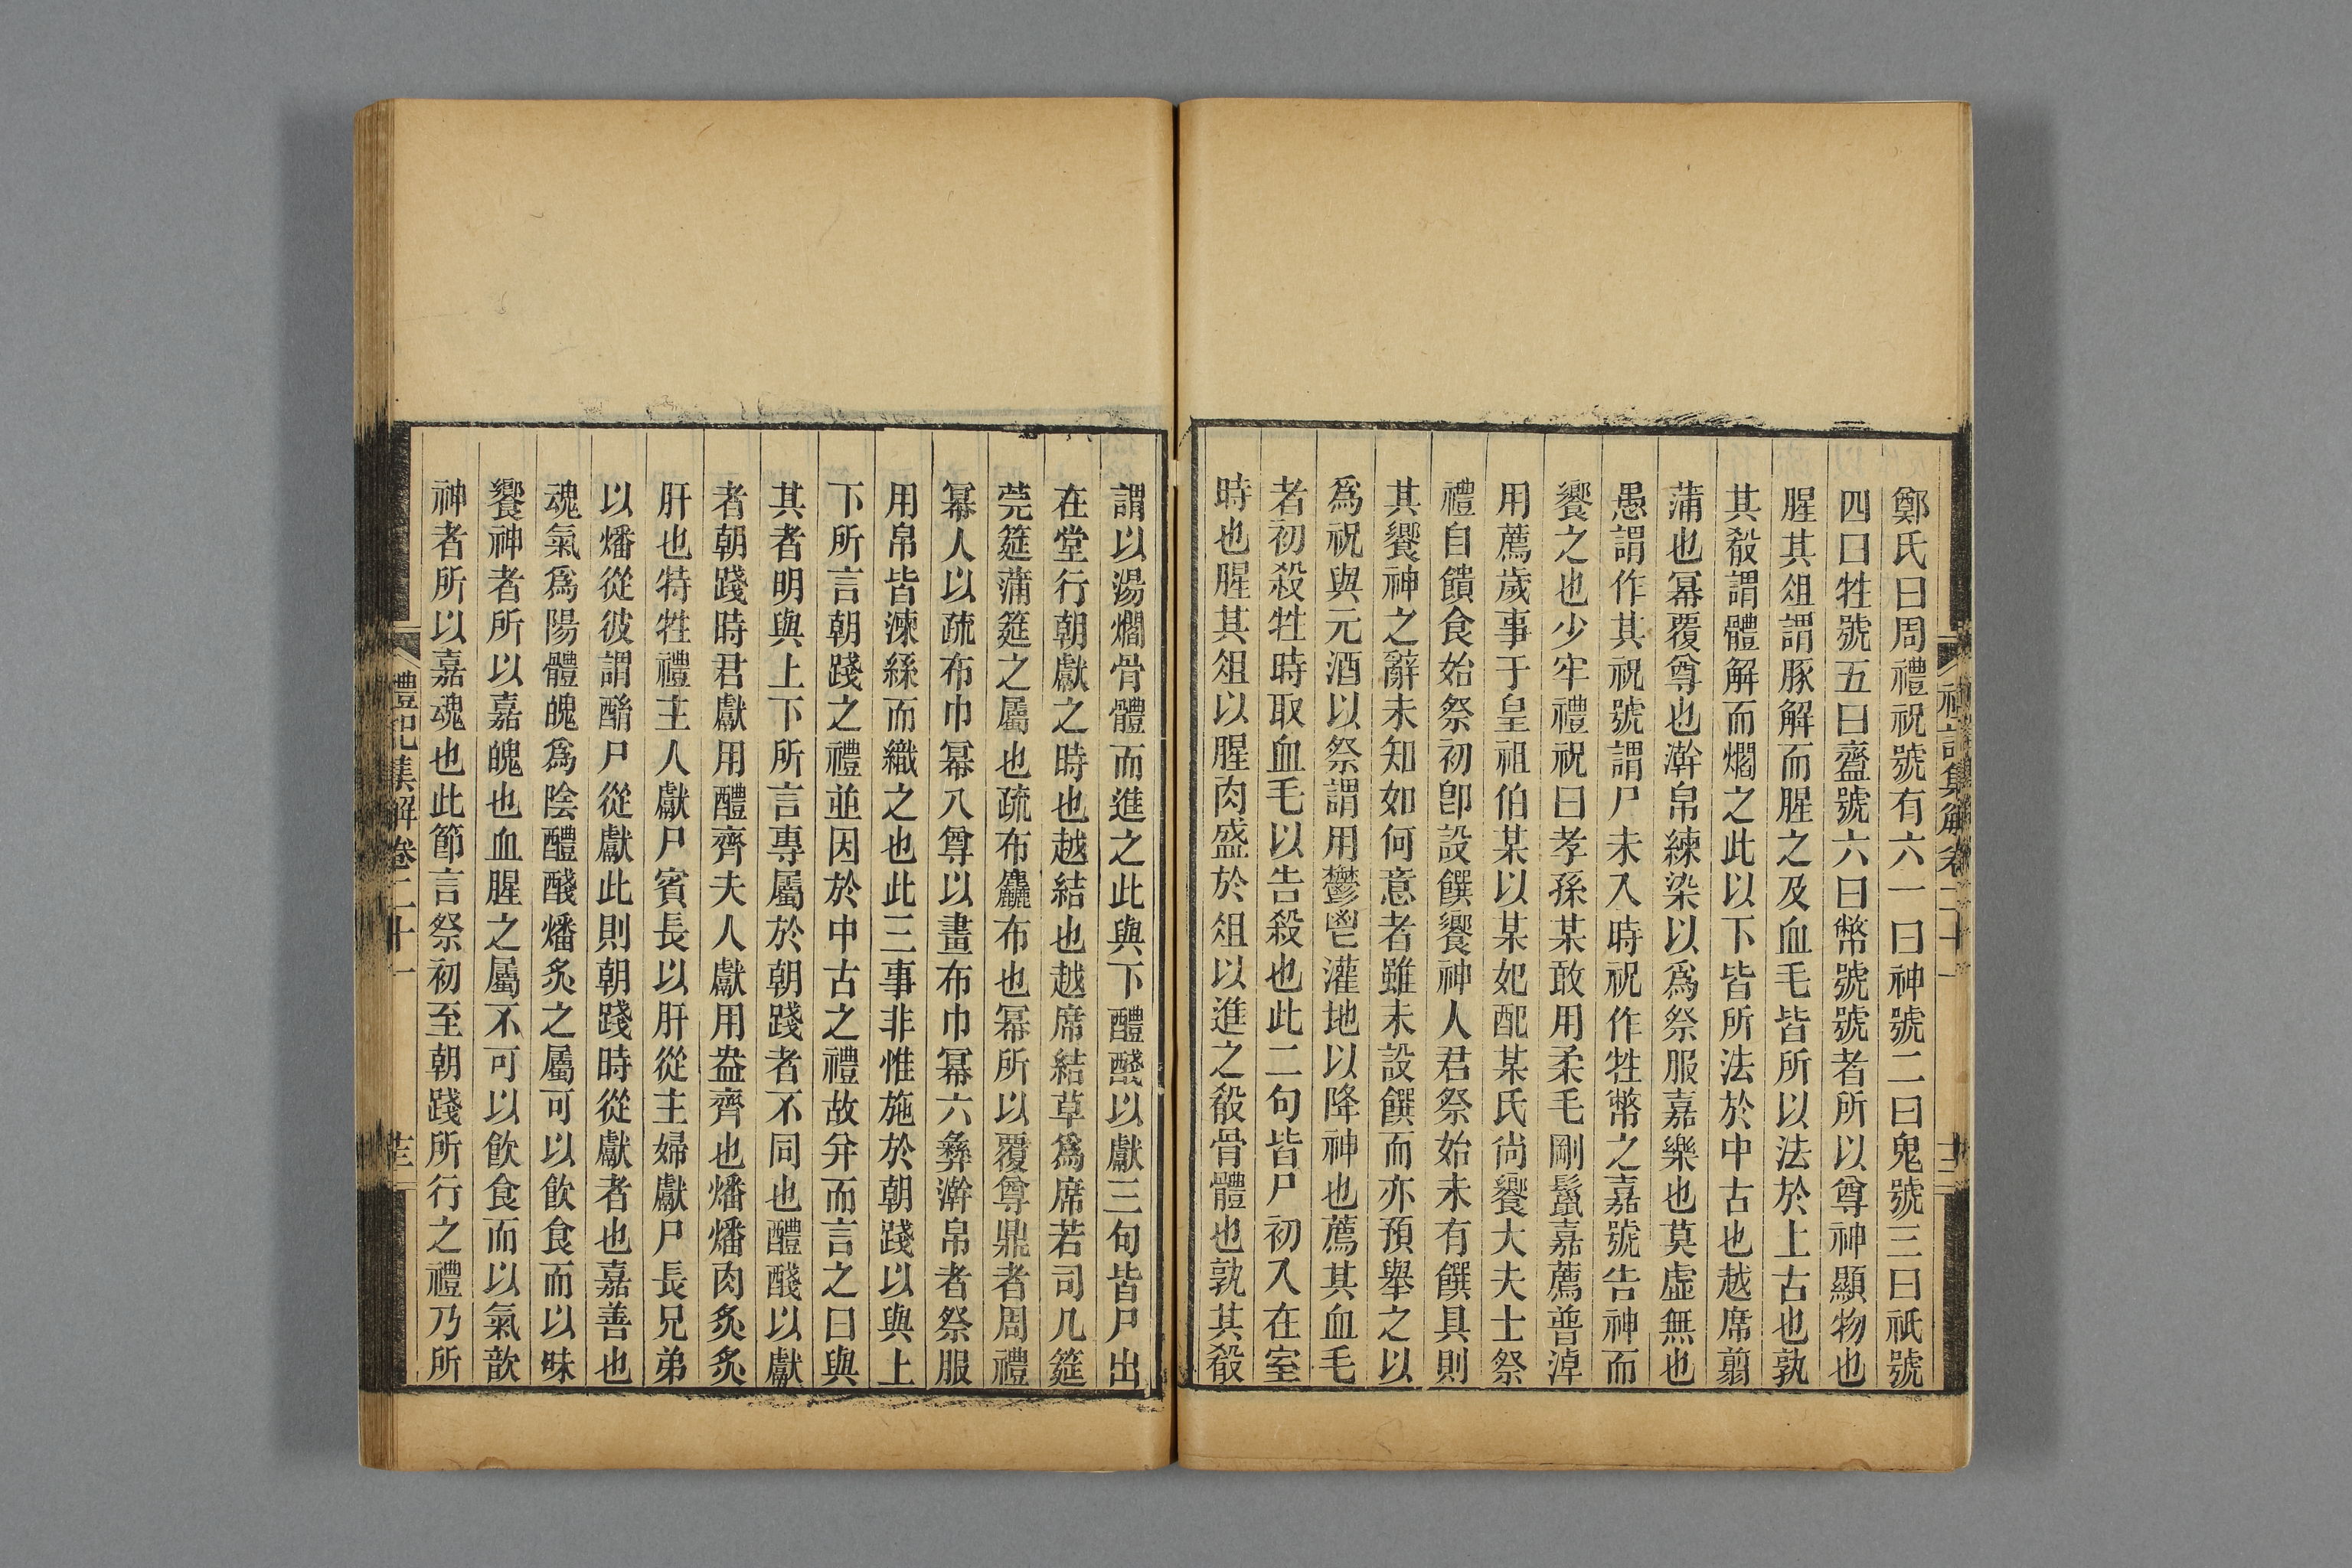 鄭氏曰周禮祝號有六一曰神號二曰鬼號三曰祇號
四曰牲號五曰齍號六曰幣號號者所以尊神顯物也
腥其俎謂豚解而腥之及血毛皆所以法於上古也孰
其殽謂體解而爓之此以下皆所法於中古也越席翦
蒲也冪覆尊也澣帛練染以爲祭服嘉樂也莫虛無也
愚謂作其祝號謂尸未入時祝作牲幣之嘉號告神而
饗之也少牢禮祝曰孝孫某敢用柔毛剛鬛嘉薦普淖
用薦歲事于皇祖伯某以某妃配某氏尚饗大夫士祭
禮自饋食始祭初卽設饌饗神人君祭始未有饌具則
其饗神之辭未知如何意者雖未設饌而亦預舉之以
爲祝與元酒以祭謂用鬱鬯灌地以降神也薦其血毛
者初殺牲時取血毛以告殺也此二句皆尸初入在室
時也腥其俎以腥肉盛於俎以進之殽骨體也孰其殽
謂以湯爓骨體而進之此與下醴醆以獻三句皆尸出
在堂行朝獻之時也越結也越席結草爲席若司几筵
莞筵蒲筵之屬也疏布麤布也冪所以覆尊鼎者周禮
冪人以疏布巾冪八尊以畫布巾冪六彝澣帛者祭服
用帛皆湅絲而織之也此三事非惟施於朝踐以與上
下所言朝踐之禮並因於中古之禮故幷而言之曰與
其者明與上下所言專屬於朝踐者不同也醴醆以獻
者朝踐時君獻用醴齊夫人獻用盎齊也燔燔肉炙炙
肝也特牲禮主人獻尸賓長以肝從主婦獻尸長兄弟
以燔從彼謂酳尸從獻此則朝踐時從獻者也嘉善也
魂氣爲陽體魄爲陰醴醆燔炙之屬可以飲食而以味
饗神者所以嘉魄也血腥之屬不可以飲食而以氣歆
神者所以嘉魂也此節言祭初至朝踐所行之禮乃所
禮記集解卷二十一